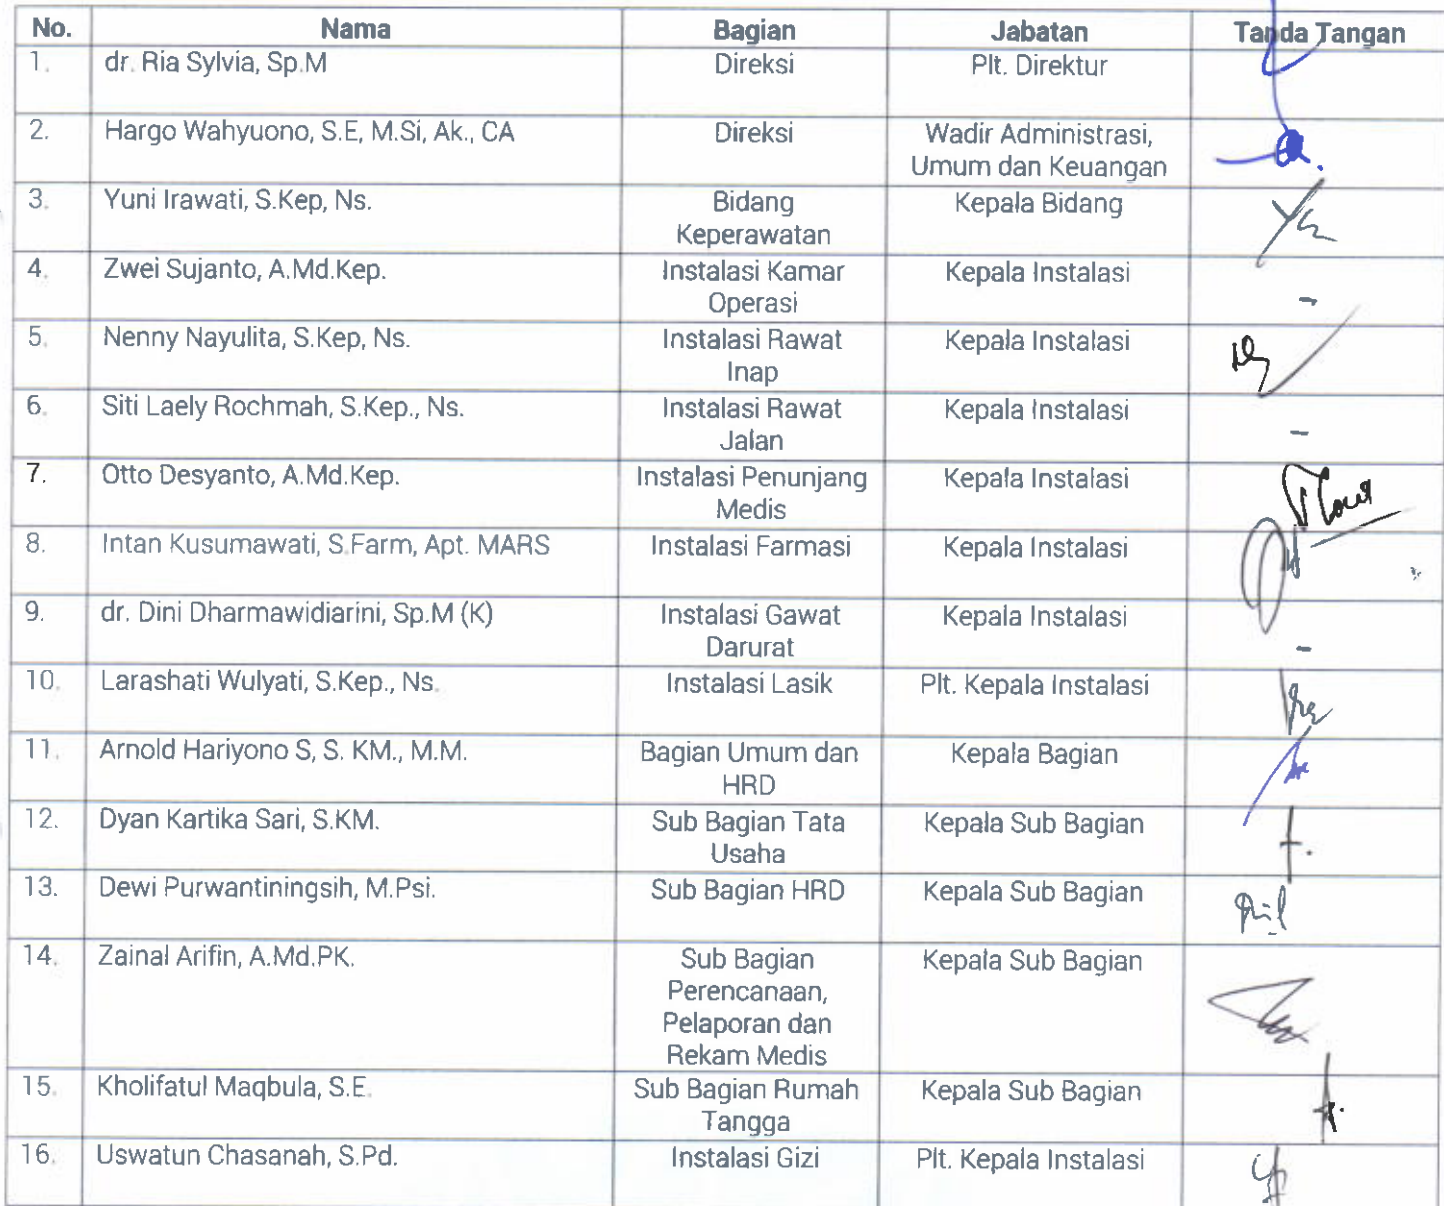 No. Nama Bagian Jabatan Tanda Tangan
1. dr. Ria Sylvia, Sp.M Direksi Plt. Direktur
2. Hargo Wahyuono, S.E, M.Si, Ak., CA Direksi Wadir Administrasi,
Umum dan Keuangan
3. Yuni Irawati, S.Kep, Ns. Bidang Kepala Bidang
Keperawatan
4. Zwei Sujanto, A.Md.Kep. Instalasi Kamar Kepala Instalasi
Operasi -
5. Nenny Nayulita, S.Kep, Ns. Instalasi Rawat Kepala Instalasi
Inap
6. Siti Laely Rochmah, S.Kep., Ns. Instalasi Rawat Kepala Instalasi
Jalan -
7. Otto Desyanto, A.Md.Kep. Instalasi Penunjang Kepala Instalasi
Medis
8. Intan Kusumawati, S.Farm, Apt. MARS Instalasi Farmasi Kepala Instalasi
9. dr. Dini Dharmawidiarini, Sp.M (K) Instalasi Gawat Kepala Instalasi
Darurat -
10. Larashati Wulyati, S.Kep., Ns. Instalasi Lasik Plt. Kepala Instalasi
11. Arnold Hariyono S, S. KM., M.M. Bagian Umum dan Kepala Bagian
HRD
12. Dyan Kartika Sari, S.KM. Sub Bagian Tata Kepala Sub Bagian
Usaha
13. Dewi Purwantiningsih, M.Psi. Sub Bagian HRD Kepala Sub Bagian
14. Zainal Arifin, A.Md.PK. Sub Bagian Kepala Sub Bagian
Perencanaan,
Pelaporan dan
Rekam Medis
15. Kholifatul Maqbula, S.E. Sub Bagian Rumah Kepala Sub Bagian
Tangga
16. Uswatun Chasanah, S.Pd. Instalasi Gizi Plt. Kepala Instalasi